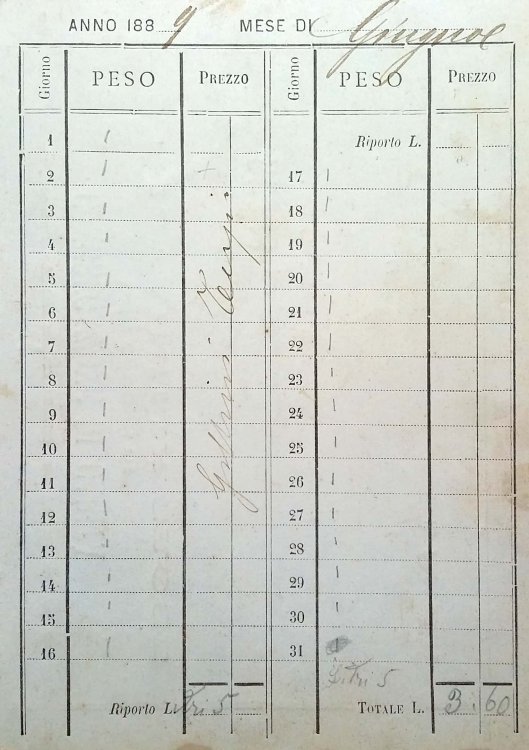 ANNO 1889 MESE DI Giugno
Giorno PESO PREZZO Giorno PESO PREZZO
1 1 Riporto L.
2 1 17 1
3 1 18 1
4 1 19 1
5 1 20 1
6 1 21 1
7 1 22 1
8 1 23 1
9 1 24 1
10 1 25 1
11 1 26 1
12 1 27 1
13 1 28 1
14 1 29 1
15 1 30 1
16 1 31
Litri 5
Riporto L. Litri 5 TOTALE L. 3.60